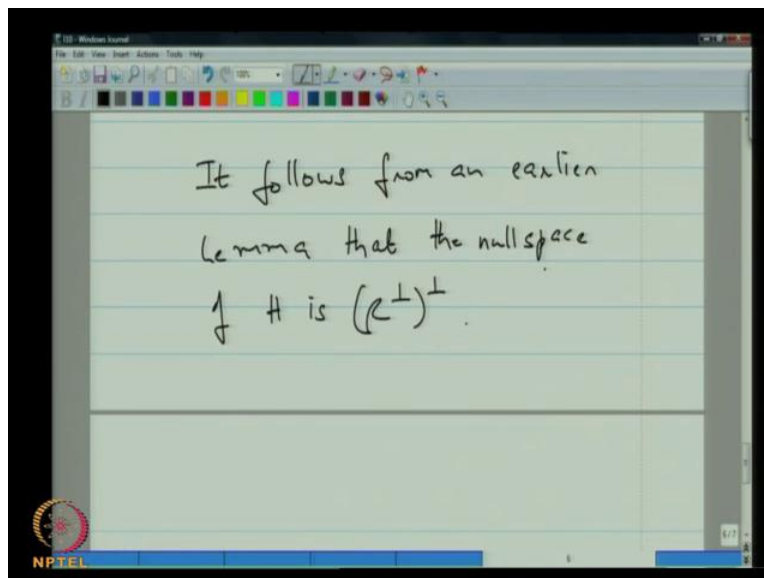 110 - Windows Journal
File Edit View Insert Actions Tools Help
100%
B I
It follows from an earlier
Lemma that the nullspace
of H is (C⊥)⊥.
6/7
6
NPTEL